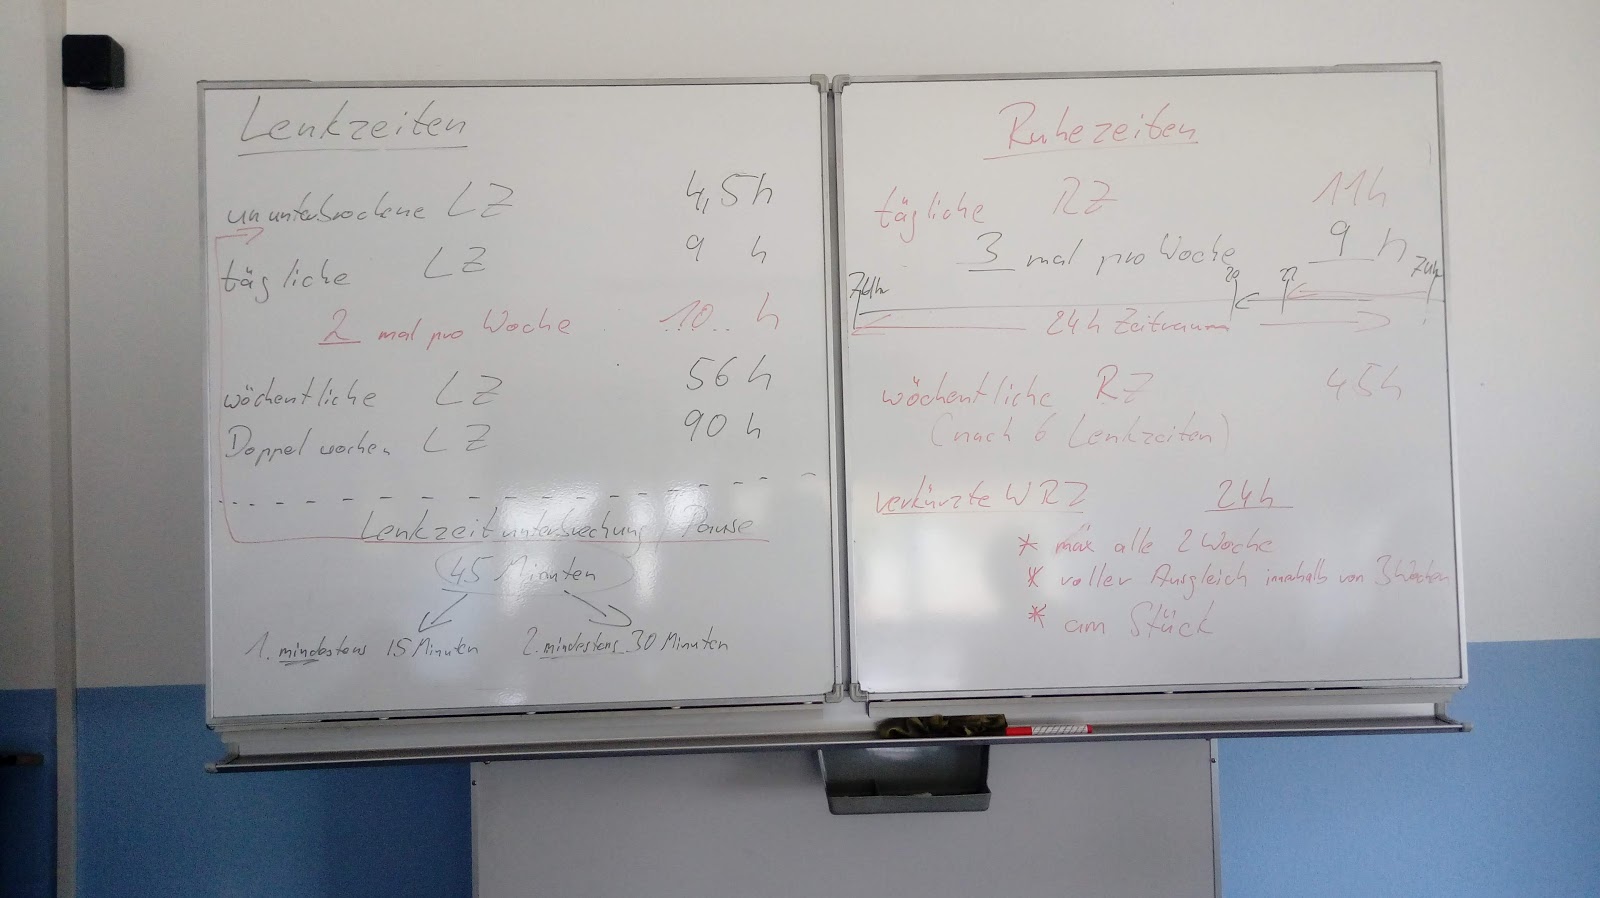 Lenkzeiten
ununterbrochene LZ 4,5 h
tägliche LZ 9 h
2 mal pro Woche 10 h
wöchentliche LZ 56 h
Doppelwochen LZ 90 h
Lenkzeitunterbrechung / Pause
45 Minuten
1. mindestens 15 Minuten 2. mindestens 30 Minuten
Ruhezeiten
tägliche RZ 11 h
3 mal pro Woche 9 h
7 Uhr 20 22 7 Uhr
24 h Zeitraum
wöchentliche RZ 45 h
(nach 6 Lenkzeiten)
verkürzte WRZ 24 h
* max alle 2 Woche
* voller Ausgleich innerhalb von 3 Wochen
* am Stück